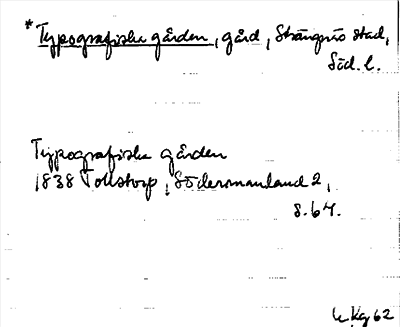 *Typografiska gården, gård, Strängnäs stad,
Söd. l.
Typografiska gården
1838 Tollstorp, Södermanland 2,
s. 67.
Kg 62